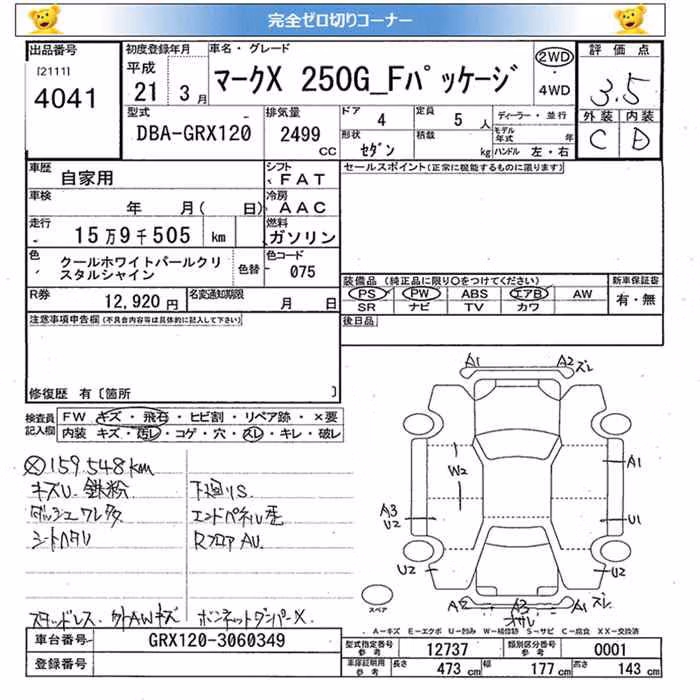 完全ゼロ切りコーナー
出品番号
[2111]
4041
初度登録年月
平成
21 3月
車名・グレード
マークX 250G_Fパッケージ
2WD
・
4WD
評価点
3.5
外装 内装
C D
型式
DBA-GRX120
排気量
2499
CC
ドア 4
定員 5 人
形状 セダン
積載 kg
ディーラー・並行
モデル年式 年
ハンドル 左・右
車歴
自家用
シフト
FAT
車検
年 月( 日)
冷房
AAC
走行
15万9千505 km
燃料
ガソリン
色
クールホワイトパールクリスタルシャイン
色替
色コード
075
R券
12,920円
名変通知期限
月 日
セールスポイント(正常に機能するものに限ります)
装備品 (純正品に限り○をつけてください)
PS PW ABS エアB AW
SR ナビ TV カワ
新車保証書
有・無
後日品
注意事項申告欄(不具合内容等は具体的に記入して下さい)
修復歴 有〔箇所 〕
検査員
記入欄
FW キズ・飛石・ヒビ割・リペア跡・×要
内装 キズ・汚レ・コゲ・穴・スレ・キレ・破レ
159.548km
キズU. 鉄粉
ダッシュワレタ
シートヘタリ
下廻りS.
エンドパネル歪
RフロアAU.
外AWキズ
ボンネットダンパーX
A1
A2 ズレ
W2
A1
A3
U2
U1
U2
U2
A2
A3
オサレ
A1 ズレ
スペア
A-キズ E-エクボ U-凹み W-補修跡 S-サビ C-腐食 XX-交換済
車台番号
GRX120-3060349
登録番号
型式指定番号
参考
12737
類別区分番号
参考
0001
車庫証明用
参考
長さ 473 cm
幅 177 cm
高さ 143 cm